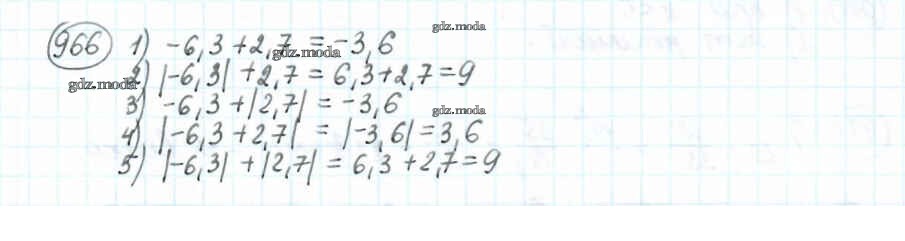 gdz.moda
966 1) -6,3 + 2,7 = -3,6
gdz.moda
2) |-6,3| + 2,7 = 6,3 + 2,7 = 9
gdz.moda
3) -6,3 + |2,7| = -3,6
gdz.moda
4) |-6,3 + 2,7| = |-3,6| = 3,6
5) |-6,3| + |2,7| = 6,3 + 2,7 = 9